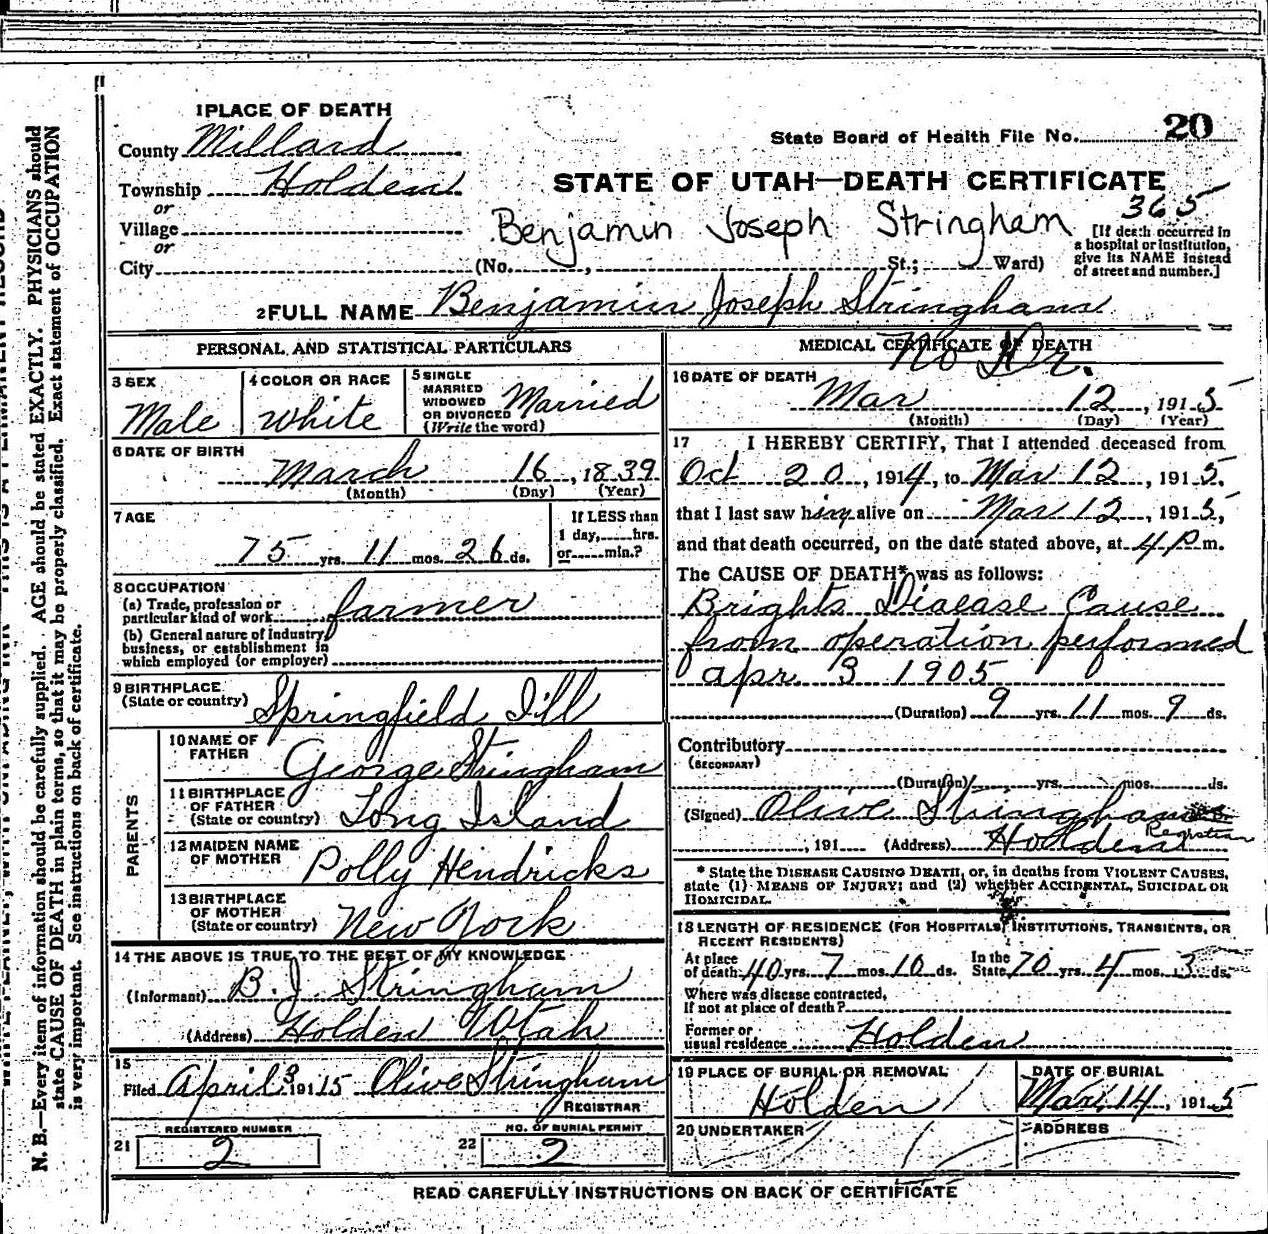 1 PLACE OF DEATH
County Millard
Township Holden
or
Village
or
City
State Board of Health File No. 20
STATE OF UTAH—DEATH CERTIFICATE
365
Benjamin Joseph Stringham
(No. , St.; Ward)
[If death occurred in a hospital or institution, give its NAME instead of street and number.]
2 FULL NAME Benjamin Joseph Stringham
PERSONAL AND STATISTICAL PARTICULARS
3 SEX Male
4 COLOR OR RACE White
5 SINGLE MARRIED WIDOWED OR DIVORCED (Write the word) Married
6 DATE OF BIRTH
March 16, 1839
(Month) (Day) (Year)
7 AGE
75 yrs. 11 mos. 26 ds.
If LESS than 1 day, hrs. or min.?
8 OCCUPATION
(a) Trade, profession or particular kind of work farmer
(b) General nature of industry, business, or establishment in which employed (or employer)
9 BIRTHPLACE (State or country) Springfield Ill
PARENTS
10 NAME OF FATHER George Stringham
11 BIRTHPLACE OF FATHER (State or country) Long Island
12 MAIDEN NAME OF MOTHER Polly Hendricks
13 BIRTHPLACE OF MOTHER (State or country) New York
14 THE ABOVE IS TRUE TO THE BEST OF MY KNOWLEDGE
(Informant) B. J. Stringham
(Address) Holden Utah
15
Filed April 3 191 15 Olive Stringham
REGISTRAR
21 REGISTERED NUMBER 2
22 NO. OF BURIAL PERMIT 2
MEDICAL CERTIFICATE OF DEATH
No Dr.
16 DATE OF DEATH
Mar 12, 1915
(Month) (Day) (Year)
17 I HEREBY CERTIFY, That I attended deceased from
Oct 20, 1914, to Mar 12, 1915.
that I last saw him alive on Mar 12, 1915,
and that death occurred, on the date stated above, at 4 P m.
The CAUSE OF DEATH* was as follows:
Brights Diaease Cause
from operation performed
apr 3 1905
(Duration) 9 yrs. 11 mos. 9 ds.
Contributory
(SECONDARY)
(Duration) yrs. mos. ds.
(Signed) Olive Stringham
Registrar
, 191 (Address) Holden
* State the DISEASE CAUSING DEATH, or, in deaths from VIOLENT CAUSES,
state (1) MEANS OF INJURY; and (2) whether ACCIDENTAL, SUICIDAL OR
HOMICIDAL.
18 LENGTH OF RESIDENCE (FOR HOSPITALS, INSTITUTIONS, TRANSIENTS, OR
RECENT RESIDENTS)
At place of death 40 yrs. 7 mos. 10 ds. In the State 70 yrs. 4 mos. 3 ds.
Where was disease contracted,
if not at place of death?
Former or usual residence Holden
19 PLACE OF BURIAL OR REMOVAL
Holden
DATE OF BURIAL
Mar. 14, 1915
20 UNDERTAKER
ADDRESS
READ CAREFULLY INSTRUCTIONS ON BACK OF CERTIFICATE
N. B.—Every item of information should be carefully supplied. AGE should be stated EXACTLY. PHYSICIANS should
state CAUSE OF DEATH in plain terms, so that it may be properly classified. Exact statement of OCCUPATION
is very important. See instructions on back of certificate.